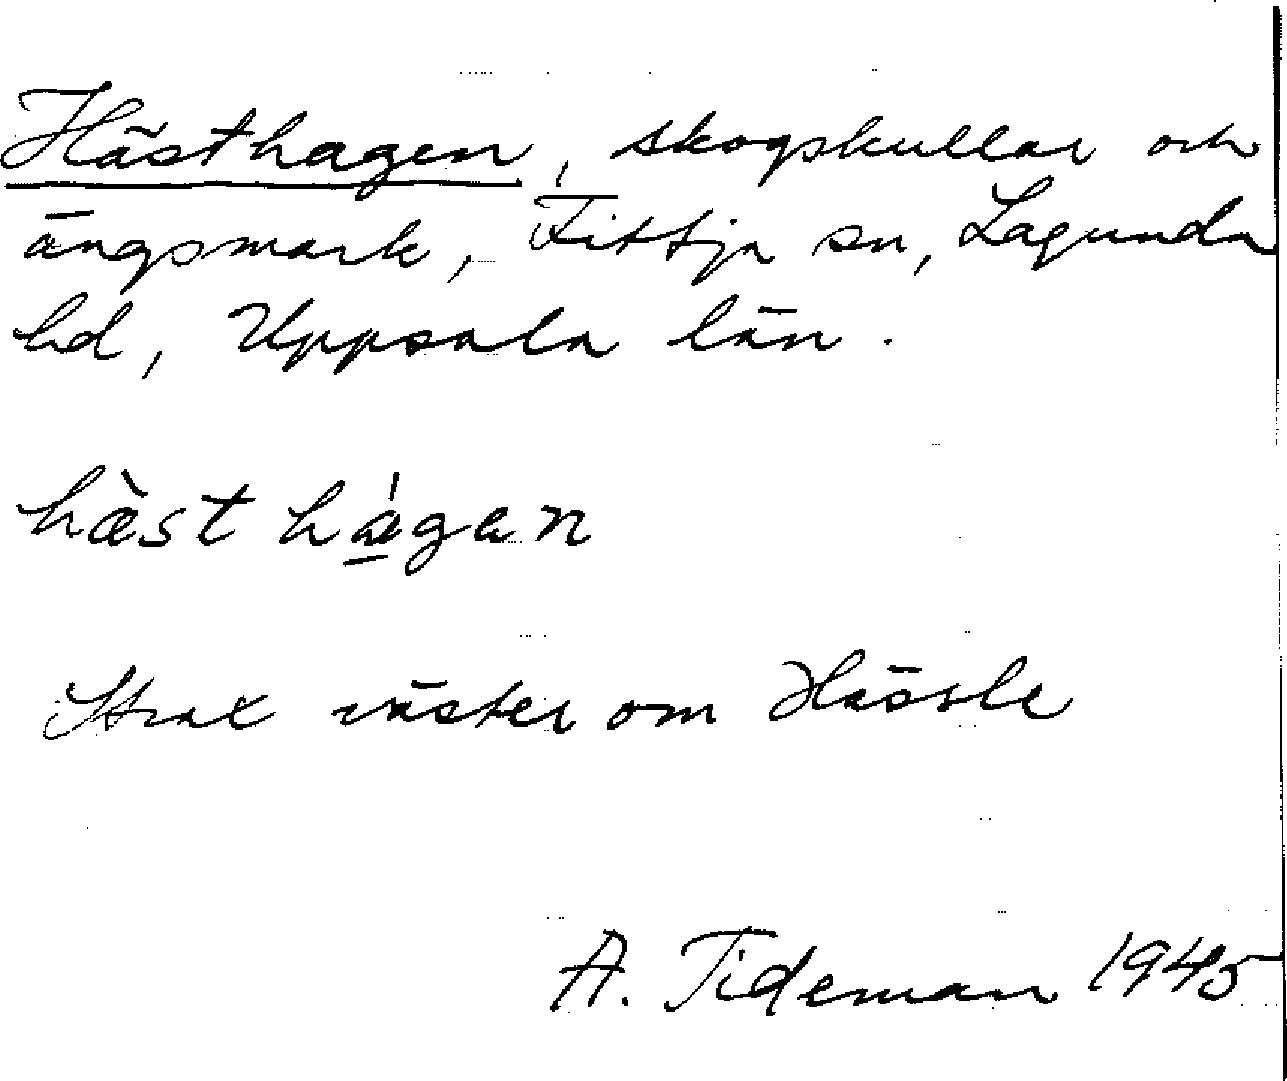 Hästhagen, skogskullar och
ängsmark, Fittja sn, Lagunda
hd, Uppsala län.
hæ̀st há̱gan
Strax väster om Hässle
A. Tideman 1945